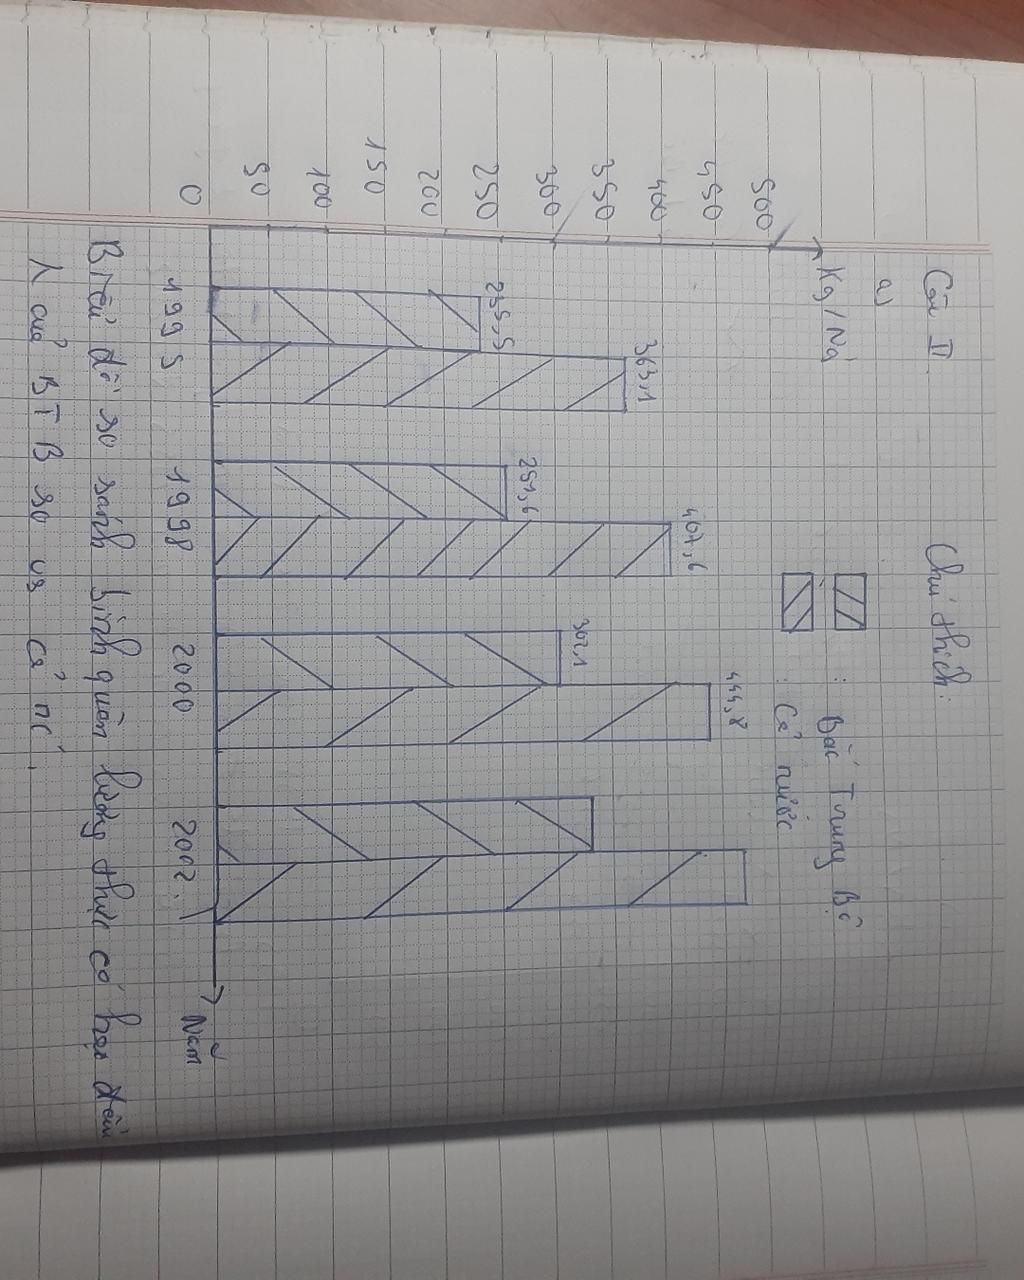 Câu II
Chú thích:
a)
: Bắc Trung Bộ
: Cả nước
Kg/Ng
500
450
400
350
300
250
200
150
100
50
0
235,5
363,1
251,6
407,6
302,1
444,8
1995
1998
2000
2002
Năm
Biểu đồ so sánh bình quân lương thực có hạt đầu
λ của BTB so vs cả nc.